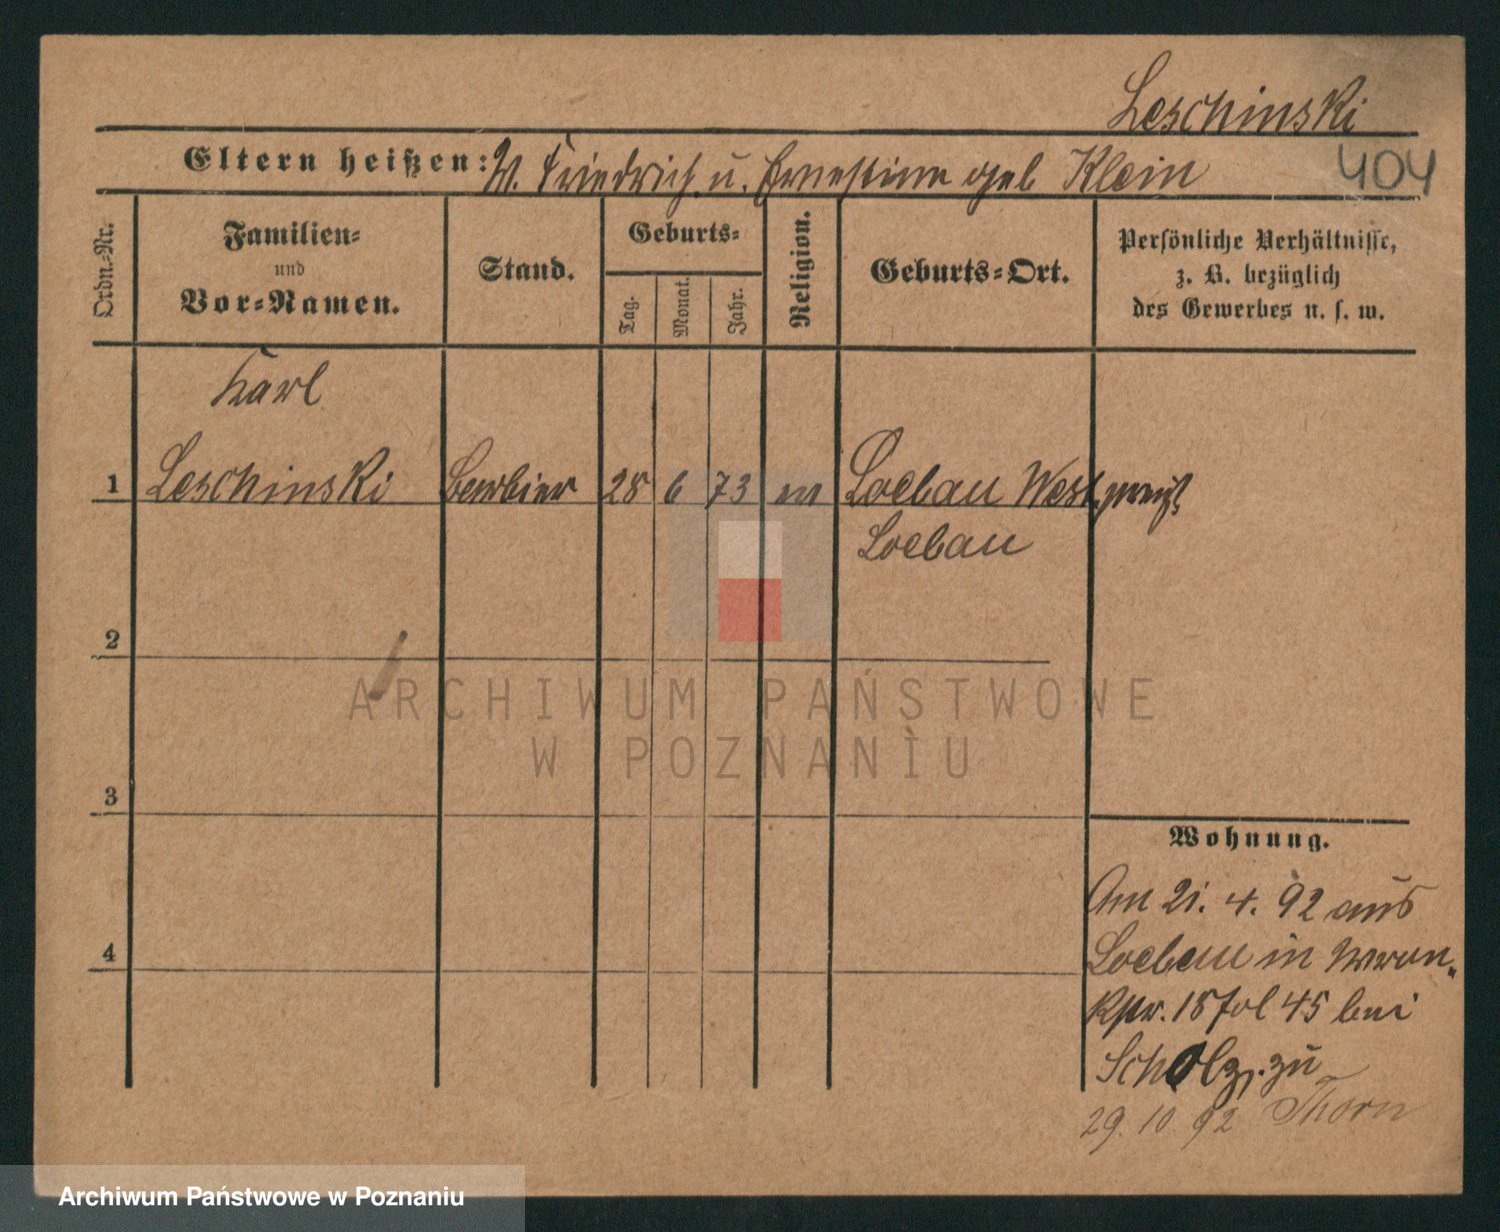 Leschinski
404
Eltern heißen: W. Friedrich u. Ernestine geb Klein
Ordn.-Nr.
Familien-
und
Vor-Namen.
Stand.
Geburts-
Tag.
Monat.
Jahr.
Religion.
Geburts-Ort.
Persönliche Verhältnisse,
z. B. bezüglich
des Gewerbes u. s. w.
Karl
1 Leschinski Barbier 28 6 73 ev Loebau Westpreuß.
Loebau
2
ARCHIWUM PAŃSTWOWE
W POZNANIU
3
Wohnung.
Am 21. 4. 92 aus
Loebau in
4
18 fol 45 bei
Scholz. zu
29. 10 92 Thorn
Archiwum Państwowe w Poznaniu